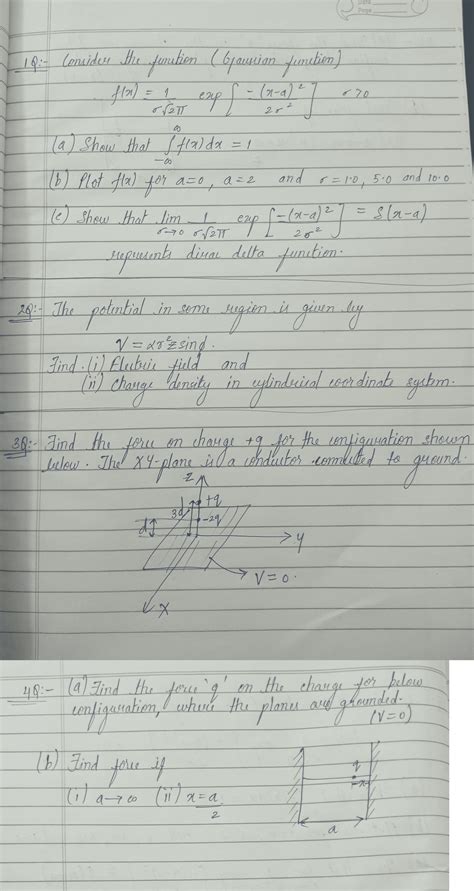 Date
Page
1Q:- Consider the function (Gaussian function)
f(x) = 1/σ√2π exp[-(x-a)²/2σ²] σ>0
(a) Show that ∫_{-∞}^{∞} f(x)dx = 1
(b) Plot f(x) for a=0, a=2 and σ=1.0, 5.0 and 10.0
(c) Show that lim_{σ→0} 1/σ√2π exp[-(x-a)²/2σ²] = δ(x-a)
represents dirac delta function.
2Q:- The potential in some region is given by
V = αr²z sinϕ.
Find (i) Electric field and
(ii) Charge density in cylindrical coordinate system.
3Q:- Find the force on charge +q for the configuration shown
below. The XY-plane is a conductor connected to ground.
Z
+q
3d
-2q
d
Y
V=0.
X
4Q:- (a) Find the force 'q' on the charge for below
configuration, where the planes are grounded.
(V=0)
(b) Find force if
(i) a→∞ (ii) x=a/2
q
-x-
a